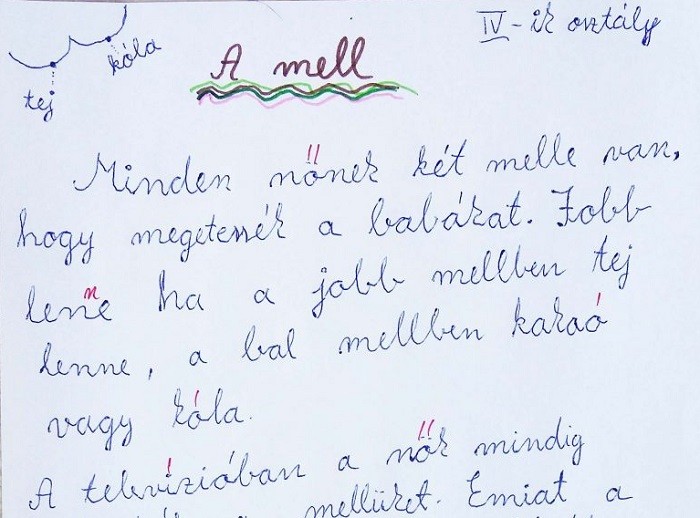 IV-ik osztály
kóla
tej
A mell
Minden nőnek két melle van,
hogy megetessék a babákat. Jobb
lenne ha a jobb mellben tej
lenne, a bal mellben kakaó
vagy kóla.
A televízióban a nők mindig
mellüket. Emiat a